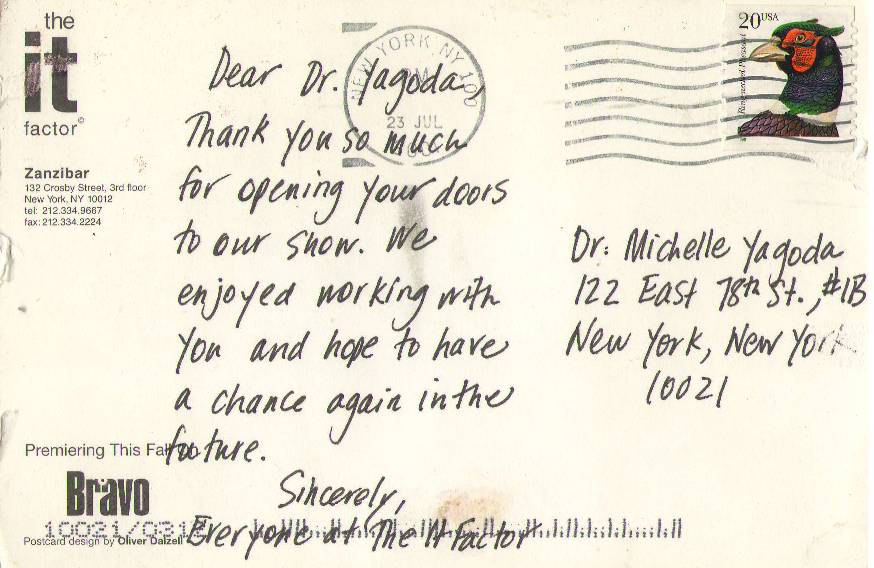 the
it
factor©
Zanzibar
132 Crosby Street, 3rd floor
New York, NY 10012
tel: 212.334.9667
fax: 212.334.2224
Dear Dr. Yagoda,
Thank you so much
for opening your doors
to our show. We
enjoyed working with
you and hope to have
a chance again in the
future.
Sincerely,
Everyone at The It Factor
Premiering This Fall
Bravo
Postcard design by Oliver Dalzell
NEW YORK NY 100
PM
23 JUL
20USA
Ring-necked Pheasant
Dr. Michelle Yagoda
122 East 78th St., #1B
New York, New York
10021